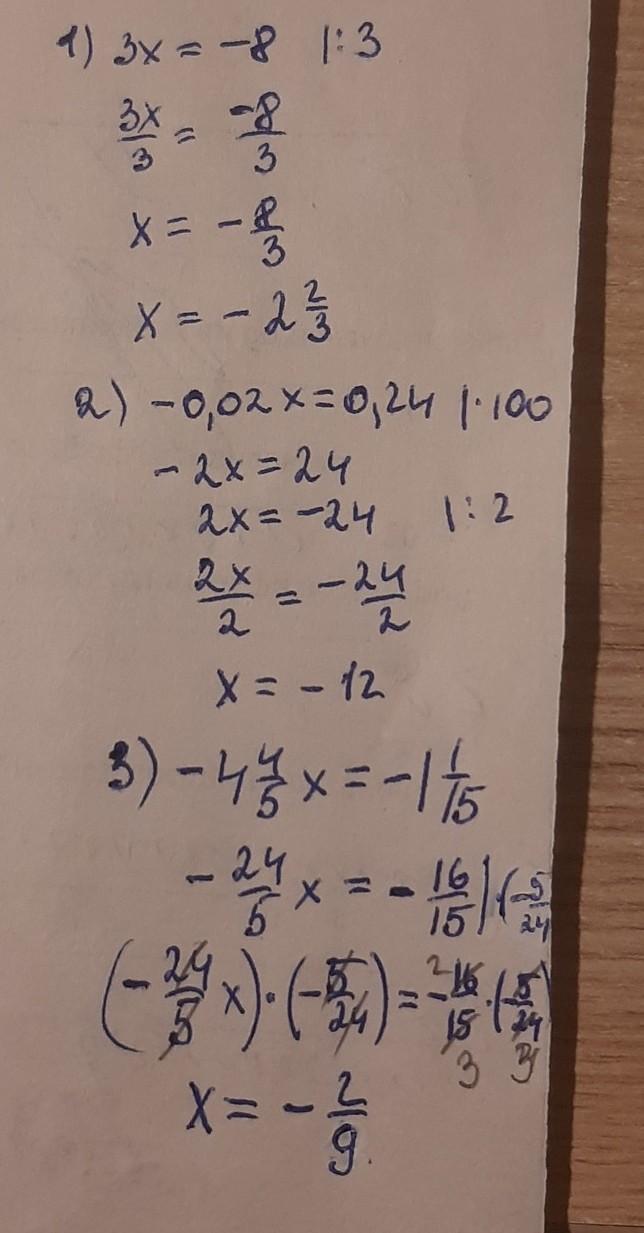 1) 3x = -8 |:3
3x/3 = -8/3
x = -8/3
x = -2 2/3
2) -0,02x = 0,24 |·100
-2x = 24
2x = -24 |:2
2x/2 = -24/2
x = -12
3) -4 4/5 x = -1 1/15
-24/5 x = -16/15 |·(-5/24
(-24/5 x)·(-5/24) = -16/15·(-5/24) 2 3 3
x = -2/9